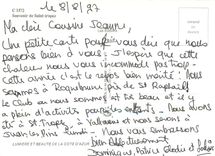 le 8/8/87
Ma chère Cousine Jeanne,
Une petite carte pour vous dire que nous
pensons bien à vous. J'espère que cette
chaleur nous vous incommode pas trop.
Cette année c'est le repos bien mérité! Nous
sommes à Roquebrune près de St Raphaël
le Club où nous sommes est très beau et il y
a plein d'activités pour les enfants. Nous avons
été à Vallauris et nous serons à
Juan les Pins lundi. Nous vous embrassons
bien affectueusement
Dominique, Patrice, Elodie et
LUMIÈRE ET BEAUTÉ DE LA CÔTE D'AZUR